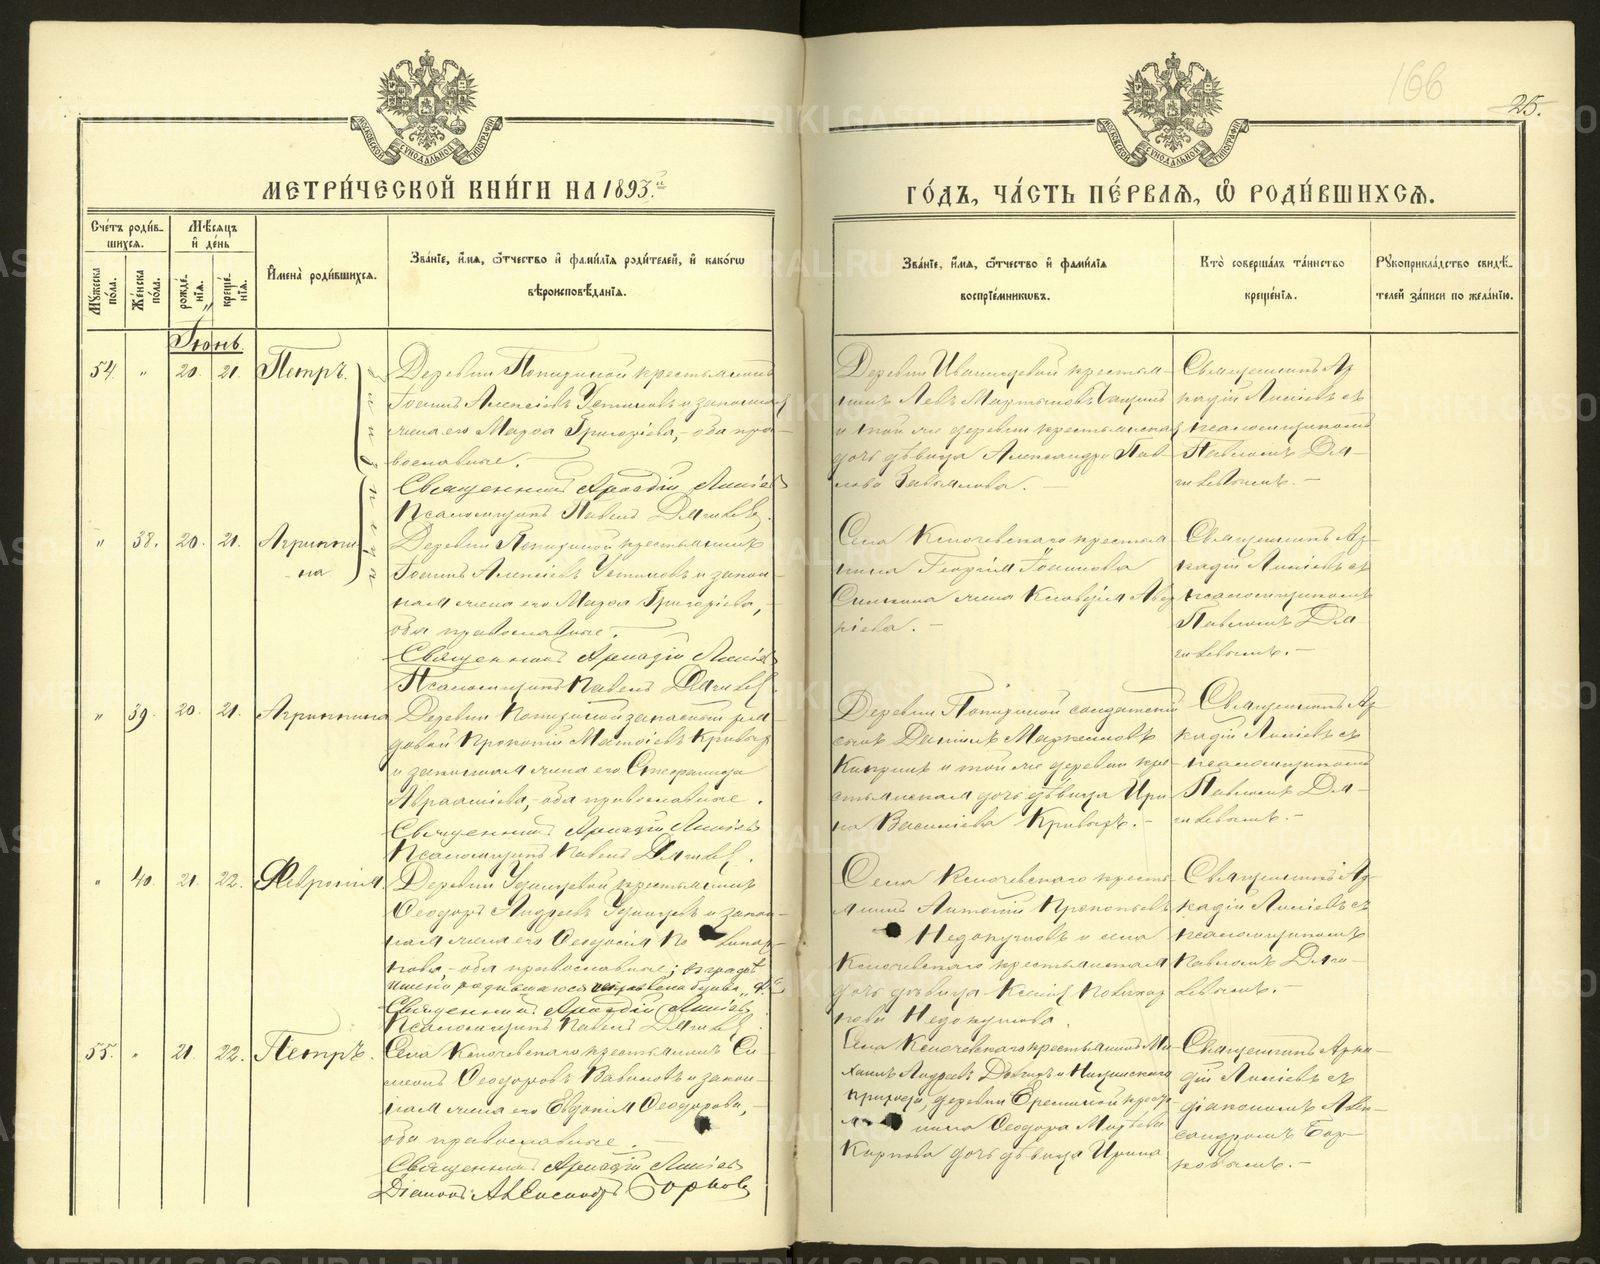 166
25.
МОСКОВСКОЙ СѴНОДАЛЬНОЙ ТИПОГРАФІИ
МОСКОВСКОЙ СѴНОДАЛЬНОЙ ТИПОГРАФІИ
МЕТРИ́ЧЕСКОЙ КНИ́ГИ НА 1893.й
ГО́ДЪ, ЧА́СТЬ ПЕ́РВАЯ, Ѽ РОДИ́ВШИХСЯ.
Сче́тъ роди́в-
шихся.
Мѣ́сяцъ
и҆ де́нь
Мꙋ́жеска по́ла.
Же́нска по́ла.
рожде́нїя.
креще́нїя.
И҆мена̀ роди́вшихся.
Зва́нїе, и҆́мя, ѻ҆́тчество и҆ фами́лїя роди́телей, и҆ како́гѡ
вѣроисповѣ́данїя.
Зва́нїе, и҆́мя, ѻ҆́тчество и҆ фами́лїя
воспрїе́мникѡвъ.
Кто̀ соверша́лъ та́инство
креще́нїя.
Рꙋкоприкла́дство свидѣ́-
телей за́писи по жела́нїю.
Іюнь.
54. " 20. 21. Петръ.
Деревни Попириной крестьянинъ
Іоаннъ Алексіевъ Устиновъ и законная
жена его Марѳа Григоріева, – оба пра-
вославные. –
Священникъ Аркадій Лисіев
Псаломщикъ Павелъ Дягилев
близнецы
Крестьян-
инъ Левъ Мартыновъ
и той же деревни крестьянская
дочь дѣвица Александра Пав-
лова Завьялова. –
Священникъ Ар-
кадій Лисіевъ съ
псаломщикомъ
Павломъ Дя-
гилевымъ. –
" 38. 20. 21. Агриппи-
на
Деревни Попириной крестьянинъ
Іоаннъ Алексіевъ Устиновъ и закон-
ная жена его Марѳа Григоріева, –
оба православные. –
Священникъ Аркадій Лисіев
Псаломщикъ Павелъ Дягилев
Села Ключевскаго крестьян-
нина Георгія Іоаннова
жена Клавдія
Священникъ Ар-
кадій Лисіевъ съ
псаломщикомъ
Павломъ Дя-
гилевымъ. –
" 39. 20. 21. Агриппина
Деревни Попириной запасной ря-
довой Прокопій Матѳіевъ Кривыхъ
и законная жена его Стефанида
Авраамiева, – оба православные.
Священникъ Аркадій Лисіев
Псаломщикъ Павелъ Дягилев.
Деревни Попириной солдатскій
сынъ Даніилъ Маркелловъ
и той же деревни кре-
стьянская дочь дѣвица Ири-
на Василіева Кривыхъ. –
Священникъ Ар-
кадій Лисіевъ съ
псаломщикомъ
Павломъ Дя-
гилевымъ. –
" 40. 21. 22. Февронія.
Крестьянинъ
Ѳеодоръ Андреевъ и закон-
ная жена его Ѳеодосія По ликар-
пова, – оба православные; въ графѣ
имени родившагося исправлена буква „Ф“
Священникъ Аркадій Лисіев
Псаломщикъ Павелъ Дягилев.
Села Ключевскаго кресть-
янинъ Антоній Прокопьевъ
Недокушовъ и села
Ключевскаго крестьянская
дочь дѣвица Ксенія Поликар-
пова Недокушова.
Священникъ Ар-
кадій Лисіевъ съ
псаломщикомъ
Павломъ Дяги-
левымъ. –
55. " 21. 22. Петръ.
Села Ключевскаго крестьянинъ Си-
меонъ Ѳеодоровъ Вавиловъ и закон-
ная жена его Евдокія Ѳеодорова, –
оба православные. –
Священникъ Аркадій Лисіев
Діаконъ Александръ Борков
Села Ключевскаго крестьянинъ Ми-
хаилъ Андреевъ
прихода, деревни Ереминой кресть-
я- нина Ѳеодора Матѳеева
Карпова дочь дѣвица Ирина
Священникъ Арка-
дій Лисіевъ съ
діакономъ Алек-
сандромъ Бор-
ковымъ. –
METRIKI.GASO-URAL.RU